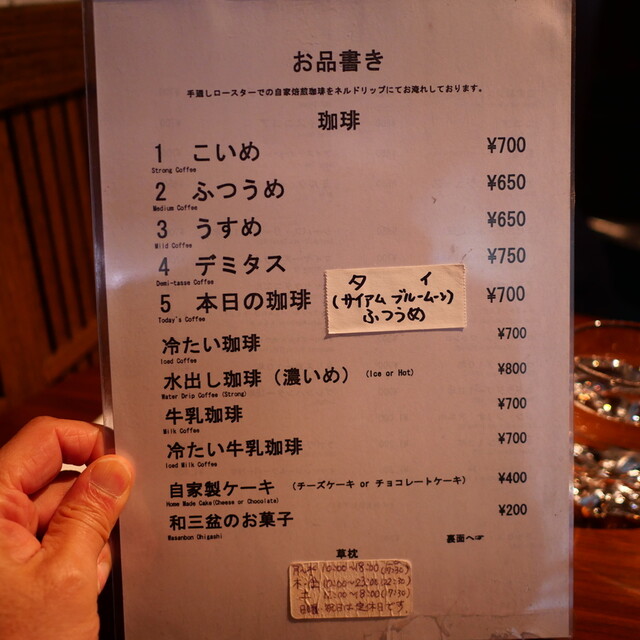 お品書き
手廻しロースターでの自家焙煎珈琲をネルドリップにてお淹れしております。
珈琲
1 こいめ ¥700
Strong Coffee
2 ふつうめ ¥650
Medium Coffee
3 うすめ ¥650
Mild Coffee
4 デミタス ¥750
Demi-tasse Coffee
5 本日の珈琲 ¥700
Today's Coffee
タイ
(サイアム ブルームーン)
ふつうめ
冷たい珈琲 ¥700
Iced Coffee
水出し珈琲（濃いめ） (Ice or Hot) ¥800
Water Drip Coffee (Strong)
牛乳珈琲 ¥700
Milk Coffee
冷たい牛乳珈琲 ¥700
Iced Milk Coffee
自家製ケーキ （チーズケーキ or チョコレートケーキ） ¥400
Home Made Cake(Cheese or Chocolate)
和三盆のお菓子 ¥200
Wasanbon Ohigashi
裏面へ☞
草枕
10:00~18:00 (17:30)
木・金 10:00~23:00 (22:30)
土 10:00~18:00 (17:30)
日曜・祝日は定休日です